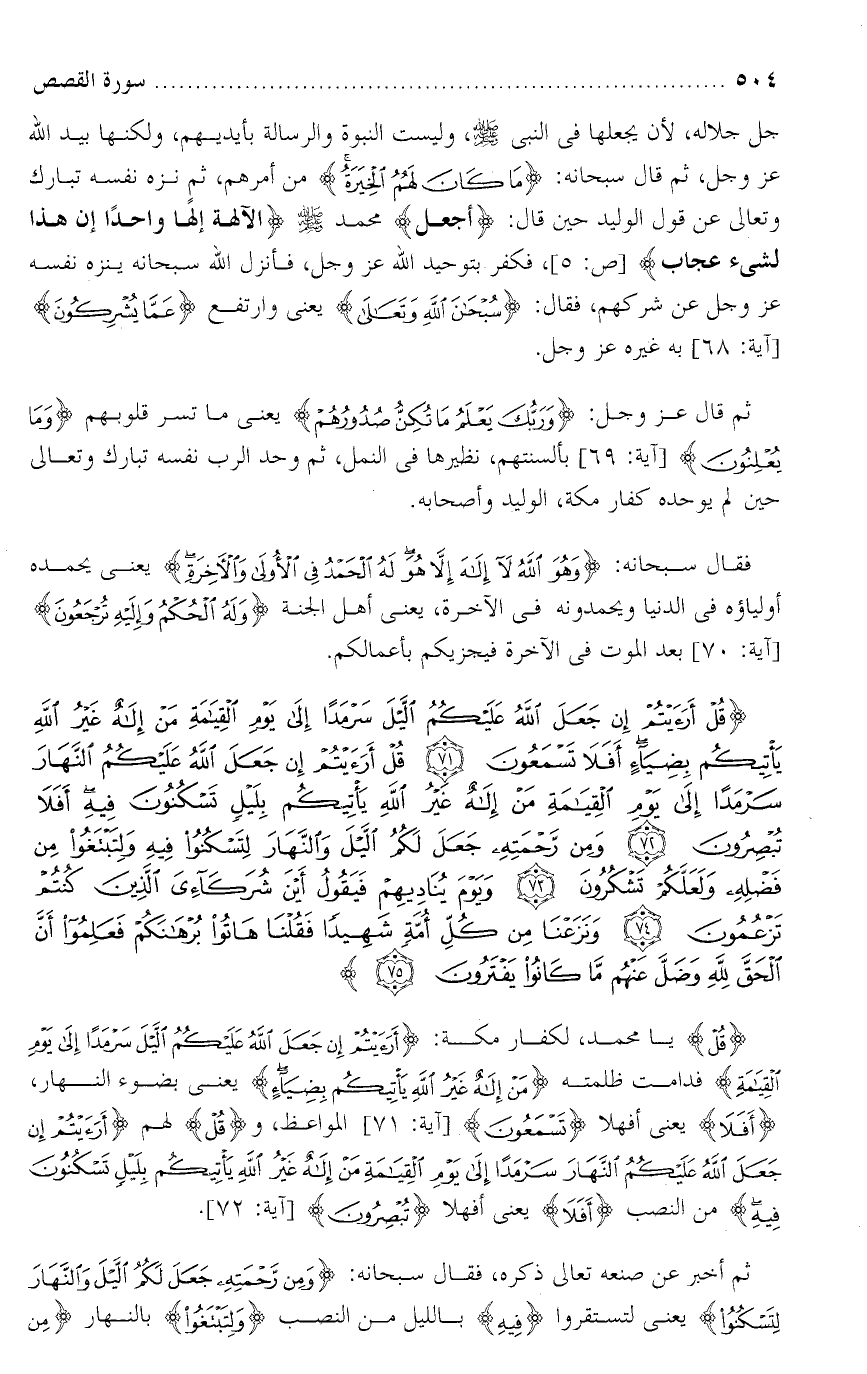 ٥٠٤ ........................................................................ سورة القصص
جل جلاله، لأن يجعلها فى النبى ﷺ، وليست النبوة والرسالة بأيديهم، ولكنها بيد الله
عز وجل، ثم قال سبحانه: ﴿مَا كَانَ لَهُمُ الْخِيَرَةُ﴾ من أمرهم، ثم نزه نفسه تبارك
وتعالى عن قول الوليد حين قال: ﴿أجعل﴾ محمد ﷺ ﴿الآلهة إلهًا واحدًا إن هذا
لشىء عجاب﴾ [ص: ٥]، فكفر بتوحيد الله عز وجل، فأنزل الله سبحانه ينزه نفسه
عز وجل عن شركهم، فقال: ﴿سُبْحَٰنَ اللَّهِ وَتَعَٰلَىٰ﴾ يعنى وارتفع ﴿عَمَّا يُشْرِكُونَ﴾
[آية: ٦٨] به غيره عز وجل.
ثم قال عز وجل: ﴿وَرَبُّكَ يَعْلَمُ مَا تُكِنُّ صُدُورُهُمْ﴾ يعنى ما تسر قلوبهم ﴿وَمَا
يُعْلِنُونَ﴾ [آية: ٦٩] بألسنتهم، نظيرها فى النمل، ثم وحد الرب نفسه تبارك وتعالى
حين لم يوحده كفار مكة، الوليد وأصحابه.
فقال سبحانه: ﴿وَهُوَ اللَّهُ لَآ إِلَٰهَ إِلَّا هُوَ ۖ لَهُ الْحَمْدُ فِى الْأُولَىٰ وَالْآخِرَةِ ۖ﴾ يعنى يحمده
أولياؤه فى الدنيا ويحمدونه فى الآخرة، يعنى أهل الجنة ﴿وَلَهُ الْحُكْمُ وَإِلَيْهِ تُرْجَعُونَ﴾
[آية: ٧٠] بعد الموت فى الآخرة فيجزيكم بأعمالكم.
﴿قُلْ أَرَءَيْتُمْ إِن جَعَلَ اللَّهُ عَلَيْكُمُ الَّيْلَ سَرْمَدًا إِلَىٰ يَوْمِ الْقِيَٰمَةِ مَنْ إِلَٰهٌ غَيْرُ اللَّهِ
يَأْتِيكُم بِضِيَآءٍ ۖ أَفَلَا تَسْمَعُونَ ٧١ قُلْ أَرَءَيْتُمْ إِن جَعَلَ اللَّهُ عَلَيْكُمُ النَّهَارَ
سَرْمَدًا إِلَىٰ يَوْمِ الْقِيَٰمَةِ مَنْ إِلَٰهٌ غَيْرُ اللَّهِ يَأْتِيكُم بِلَيْلٍ تَسْكُنُونَ فِيهِ ۖ أَفَلَا
تُبْصِرُونَ ٧٢ وَمِن رَّحْمَتِهِۦ جَعَلَ لَكُمُ الَّيْلَ وَالنَّهَارَ لِتَسْكُنُوا۟ فِيهِ وَلِتَبْتَغُوا۟ مِن
فَضْلِهِۦ وَلَعَلَّكُمْ تَشْكُرُونَ ٧٣ وَيَوْمَ يُنَادِيهِمْ فَيَقُولُ أَيْنَ شُرَكَآءِىَ الَّذِينَ كُنتُمْ
تَزْعُمُونَ ٧٤ وَنَزَعْنَا مِن كُلِّ أُمَّةٍ شَهِيدًا فَقُلْنَا هَاتُوا۟ بُرْهَٰنَكُمْ فَعَلِمُوٓا۟ أَنَّ
الْحَقَّ لِلَّهِ وَضَلَّ عَنْهُم مَّا كَانُوا۟ يَفْتَرُونَ ٧٥﴾
﴿قُلْ﴾ يا محمد، لكفار مكة: ﴿أَرَءَيْتُمْ إِن جَعَلَ اللَّهُ عَلَيْكُمُ الَّيْلَ سَرْمَدًا إِلَىٰ يَوْمِ
الْقِيَٰمَةِ﴾ فدامت ظلمته ﴿مَنْ إِلَٰهٌ غَيْرُ اللَّهِ يَأْتِيكُم بِضِيَآءٍ ۖ﴾ يعنى بضوء النهار،
﴿أَفَلَا﴾ يعنى أفهلا ﴿تَسْمَعُونَ﴾ [آية: ٧١] المواعظ، و﴿قُلْ﴾ لهم ﴿أَرَءَيْتُمْ إِن
جَعَلَ اللَّهُ عَلَيْكُمُ النَّهَارَ سَرْمَدًا إِلَىٰ يَوْمِ الْقِيَٰمَةِ مَنْ إِلَٰهٌ غَيْرُ اللَّهِ يَأْتِيكُم بِلَيْلٍ تَسْكُنُونَ
فِيهِ ۖ﴾ من النصب ﴿أَفَلَا﴾ يعنى أفهلا ﴿تُبْصِرُونَ﴾ [آية: ٧٢].
ثم أخبر عن صنعه تعالى ذكره، فقال سبحانه: ﴿وَمِن رَّحْمَتِهِۦ جَعَلَ لَكُمُ الَّيْلَ وَالنَّهَارَ
لِتَسْكُنُوا۟﴾ يعنى لتستقروا ﴿فِيهِ﴾ بالليل من النصب ﴿وَلِتَبْتَغُوا۟﴾ بالنهار ﴿مِن